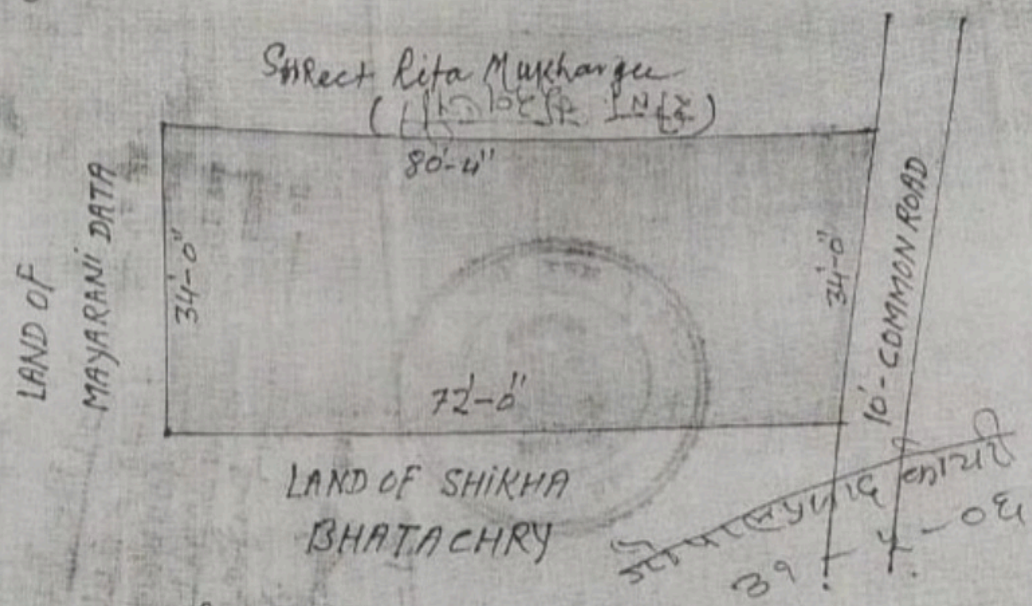 Rita Mukhargee
80'-4"
LAND OF
MAYARANI DATA
34'-0"
34'-0"
10'-COMMON ROAD
72'-0"
LAND OF SHIKHA
BHATACHRY
३१-५-०६